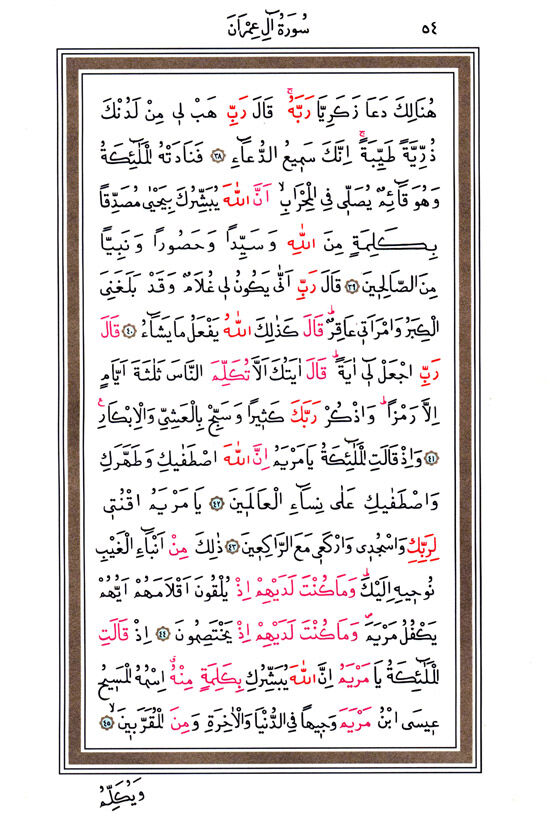 سُورَةُ اٰلِ عِمْرَانَ ٥٤
هُنَالِكَ دَعَا زَكَرِيَّا رَبَّهُۚ قَالَ رَبِّ هَبْ لٖى مِنْ لَدُنْكَ
ذُرِّيَّةً طَيِّبَةًۚ اِنَّكَ سَمٖيعُ الدُّعَاۤءِ ﴿٣٨﴾ فَنَادَتْهُ الْمَلٰۤئِكَةُ
وَهُوَ قَاۤئِمٌ يُصَلّٖى فِى الْمِحْرَابِۙ اَنَّ اللّٰهَ يُبَشِّرُكَ بِيَحْيٰى مُصَدِّقًا
بِكَلِمَةٍ مِنَ اللّٰهِ وَسَيِّدًا وَحَصُورًا وَنَبِيًّا
مِنَ الصَّالِحٖينَ ﴿٣٩﴾ قَالَ رَبِّ اَنّٰى يَكُونُ لٖى غُلَامٌ وَقَدْ بَلَغَنِىَ
الْكِبَرُ وَامْرَاَتٖى عَاقِرٌۜ قَالَ كَذٰلِكَ اللّٰهُ يَفْعَلُ مَا يَشَاۤءُ ﴿٤٠﴾ قَالَ
رَبِّ اجْعَلْ لٖٓى اٰيَةًۜ قَالَ اٰيَتُكَ اَلَّا تُكَلِّمَ النَّاسَ ثَلٰثَةَ اَيَّامٍ
اِلَّا رَمْزًاۜ وَاذْكُرْ رَبَّكَ كَثٖيرًا وَسَبِّحْ بِالْعَشِىِّ وَالْاِبْكَارِࣖ
﴿٤١﴾ وَاِذْ قَالَتِ الْمَلٰۤئِكَةُ يَا مَرْيَمُ اِنَّ اللّٰهَ اصْطَفٰيكِ وَطَهَّرَكِ
وَاصْطَفٰيكِ عَلٰى نِسَاۤءِ الْعَالَمٖينَ ﴿٤٢﴾ يَا مَرْيَمُ اقْنُتٖى
لِرَبِّكِ وَاسْجُدٖى وَارْكَعٖى مَعَ الرَّاكِعٖينَ ﴿٤٣﴾ ذٰلِكَ مِنْ اَنْبَاۤءِ الْغَيْبِ
نُوحٖيهِ اِلَيْكَۜ وَمَا كُنْتَ لَدَيْهِمْ اِذْ يُلْقُونَ اَقْلَامَهُمْ اَيُّهُمْ
يَكْفُلُ مَرْيَمَۖ وَمَا كُنْتَ لَدَيْهِمْ اِذْ يَخْتَصِمُونَ ﴿٤٤﴾ اِذْ قَالَتِ
الْمَلٰۤئِكَةُ يَا مَرْيَمُ اِنَّ اللّٰهَ يُبَشِّرُكِ بِكَلِمَةٍ مِنْهُۗ اسْمُهُ الْمَسٖيحُ
عٖيسَى ابْنُ مَرْيَمَ وَجٖيهًا فِى الدُّنْيَا وَالْاٰخِرَةِ وَمِنَ الْمُقَرَّبٖينَۙ ﴿٤٥﴾
وَيُكَلِّمُ